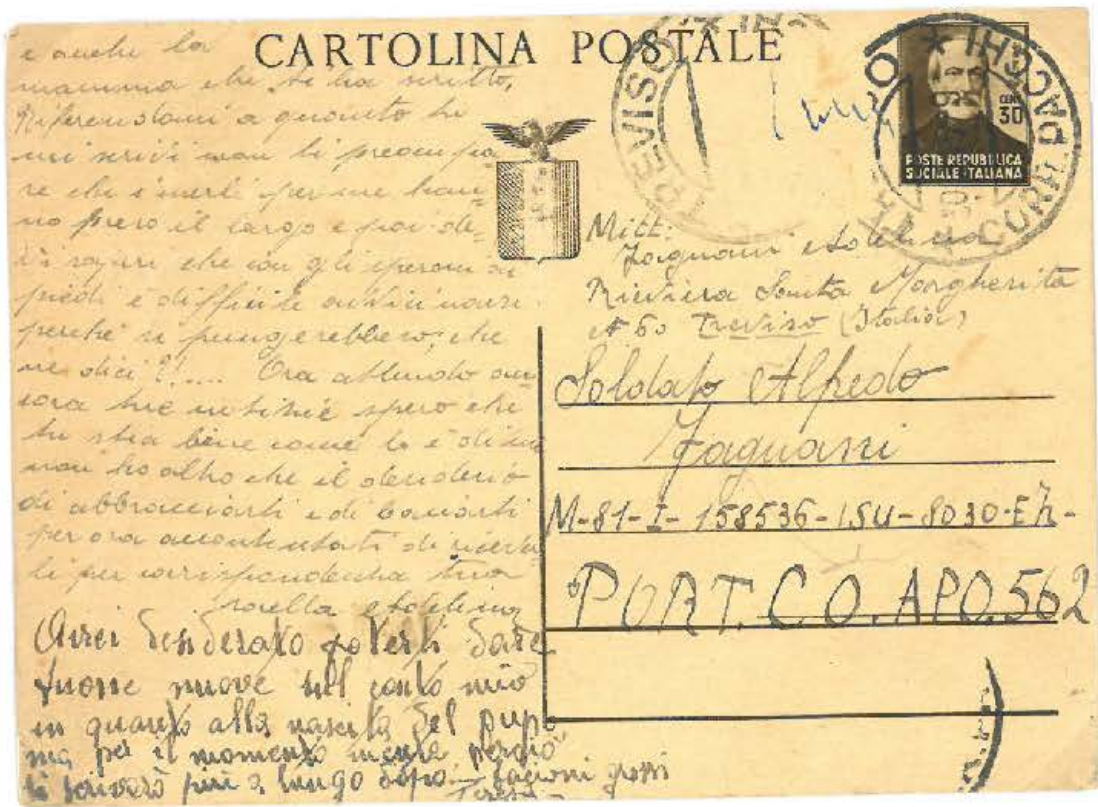 CARTOLINA POSTALE
e anche la
mamma che ti ha scritto,
Riferendomi a quanto tu
mi scrivi non ti preoccupa
re che i merli per me han=
no preso il largo e poi de=
vi sapere che con gli speroni ai
piedi è difficile avvicinarsi
perché si pungerebbero; che
ne dici?!.... Ora attendo an=
cora tue notizie spero che
tu stia bene come lo è di me
non ho altro che il desiderio
di abbracciarti e di baciarti
per ora accontentati di riceverli
per corrispondenza tua
sorella Adelina
Avrei desiderato poterti dare
buone nuove sul conto mio
in quanto alla nascita del pupo
ma per il momento perciò
ti scriverò più a lungo dopo. - bacioni grossi
Teresa -
CENT
30
POSTE REPUBBLICA
SOCIALE ITALIANA
TREVISO
PACCHI
Mitt:
Fagnani Adelina
Riviera Santa Margherita
N. 60 Treviso (Italia)
Soldato Alfredo
Fagnani
M-81-I-158536-ISU-8030-Eh-
PORT. C.O. APO. 562